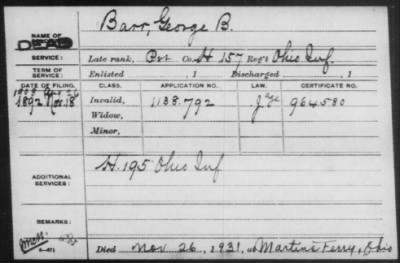 Barr, George B.
NAME OF
DEAD
SERVICE: Late rank, Pvt Co. H 157 Reg't Ohio Inf.
TERM OF SERVICE: Enlisted , 1 Discharged , 1
DATE OF FILING. CLASS. APPLICATION NO. LAW. CERTIFICATE NO.
1892 Nov. 18 Invalid, 1138.792 964580
Widow,
Minor,
H. 195 Ohio Inf
ADDITIONAL SERVICES:
REMARKS:
Died Nov 26, 1931, at Martins Ferry, Ohio